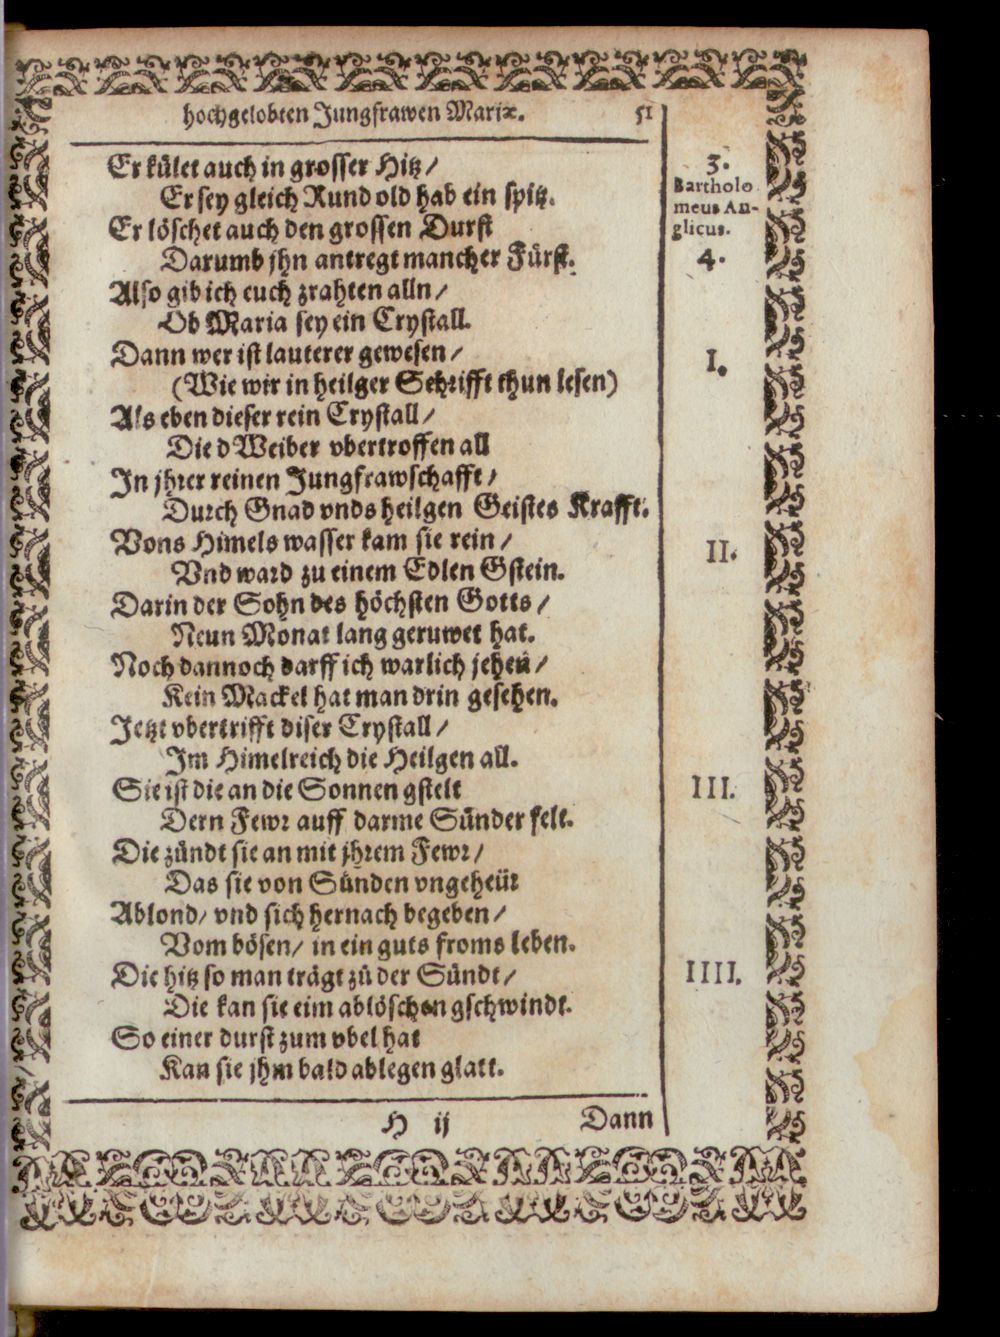 hochgelobten Jungfrawen Mariæ. 51
Er kület auch in grosser Hitz/
Er sey gleich Rund old hab ein spitz.
Er löschet auch den grossen Durst
Darumb jhn antregt mancher Fürst.
Also gib ich euch zrahten alln/
Ob Maria sey ein Crystall.
Dann wer ist lauterer gewesen/
(Wie wir in heilger Schrifft thun lesen)
Als eben dieser rein Crystall/
Die d Weiber vbertroffen all
In jhrer reinen Jungfrawschafft/
Durch Gnad vnds heilgen Geistes Krafft.
Vons Himels wasser kam sie rein/
Vnd ward zu einem Edlen Gstein.
Darin der Sohn des höchsten Gotts/
Neun Monat lang geruwet hat.
Noch dannoch darff ich warlich jehen/
Kein Mackel hat man drin gesehen.
Jetzt vbertrifft diser Crystall/
Im Himelreich die Heilgen all.
Sie ist die an die Sonnen gstelt
Dern Fewr auff darme Sünder felt.
Die zündt sie an mit jhrem Fewr/
Das sie von Sünden vngeheür
Ablond/ vnd sich hernach begeben/
Vom bösen/ in ein guts froms leben.
Die hitz so man trägt zü der Sündt/
Die kan sie eim ablöschen gschwindt.
So einer durst zum vbel hat
Kan sie jhm bald ablegen glatt.
H ij Dann
3.
Bartholo
meus An-
glicus.
4.
I.
II.
III.
IIII.